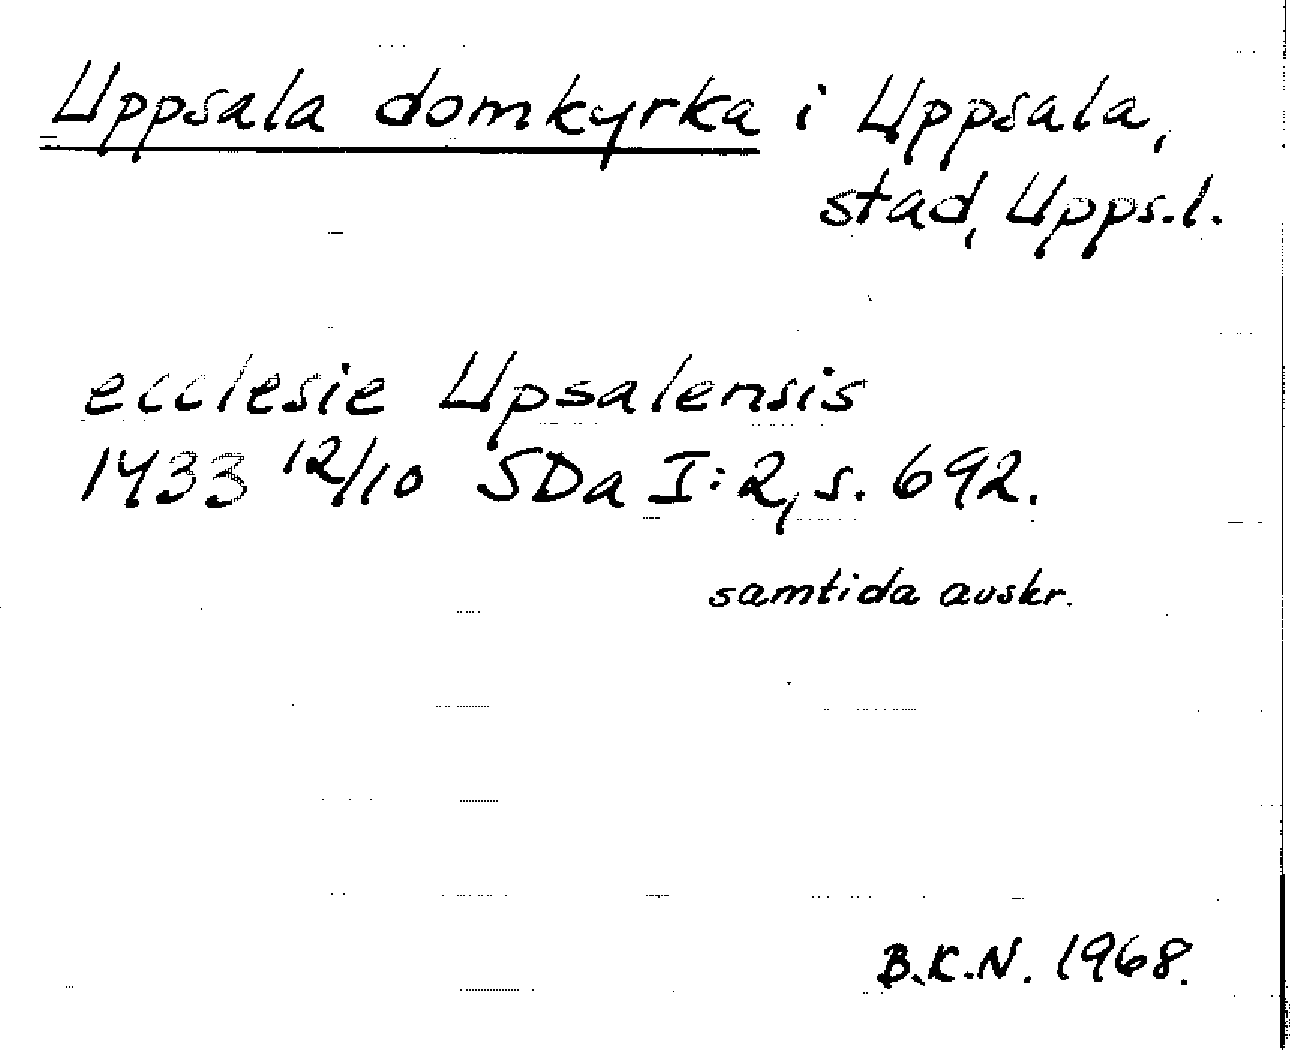 Uppsala domkyrka i Uppsala,
stad, Upps.l.
ecclesie Upsalensis
1433 12/10 SDa I:2, s. 692.
samtida avskr.
B.K.N. 1968.